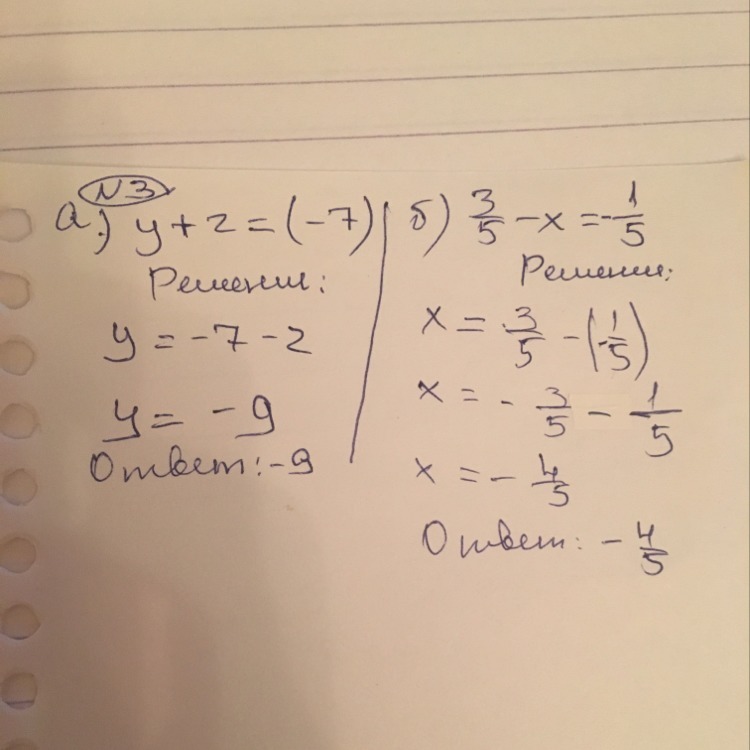 №3
а.) y + 2 = (-7)
Решении:
y = -7 - 2
y = -9
Ответ: -9
б) 3/5 - x = -1/5
Решении:
x = 3/5 - (-1/5)
x = - 3/5 - 1/5
x = - 4/5
Ответ: - 4/5